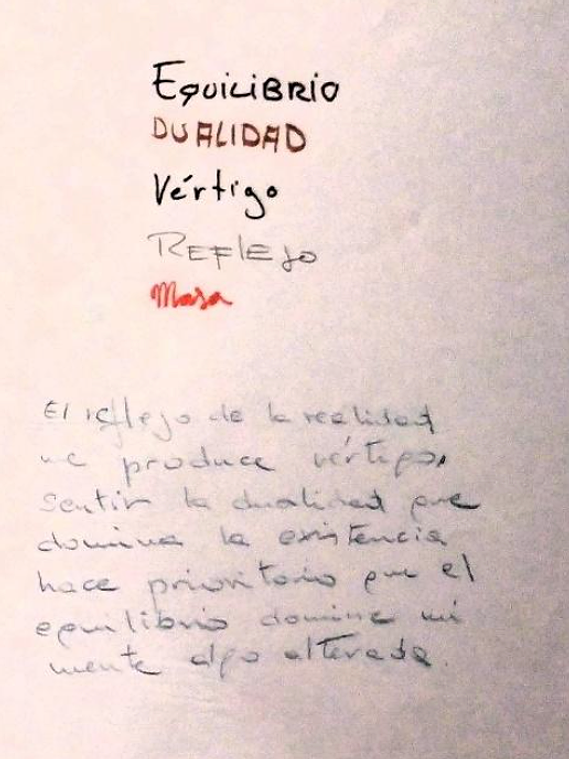 EQUILIBRIO
DUALIDAD
Vértigo
REFLEJO
Masa
El reflejo de la realidad
me produce vértigo,
sentir la dualidad que
domina la existencia
hace prioritario que el
equilibrio domine mi
mente algo alterada.